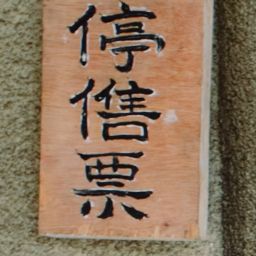 停售票